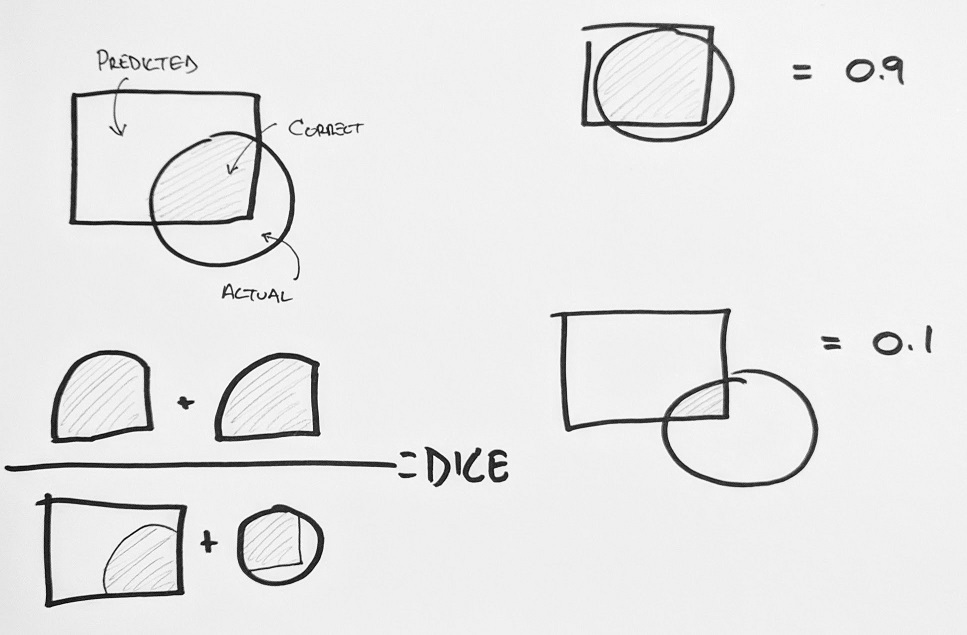 PREDICTED
CORRECT
ACTUAL
+
+
= DICE
= 0.9
= 0.1